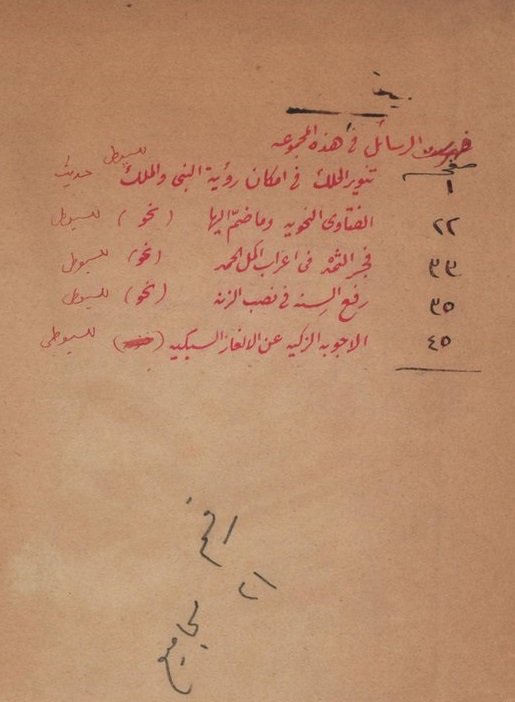 فهرست الرسائل في هذه المجموعه
صفحه
١ تنوير الحلك في امكان رؤية النبي والملك للسيوطي حديث
٢٢ الفتاوى النحويه وما ضمّ اليها (نحو) للسيوطي
٣٣ فجر الثمد في اعراب اكمل الحمد (نحو) للسيوطي
٣٥ رفع السنه في نصب الزنه (نحو) للسيوطي
٤٥ الاجوبه الزكيه عن الالغاز السبكيه للسيوطي
٢١
مجاميع